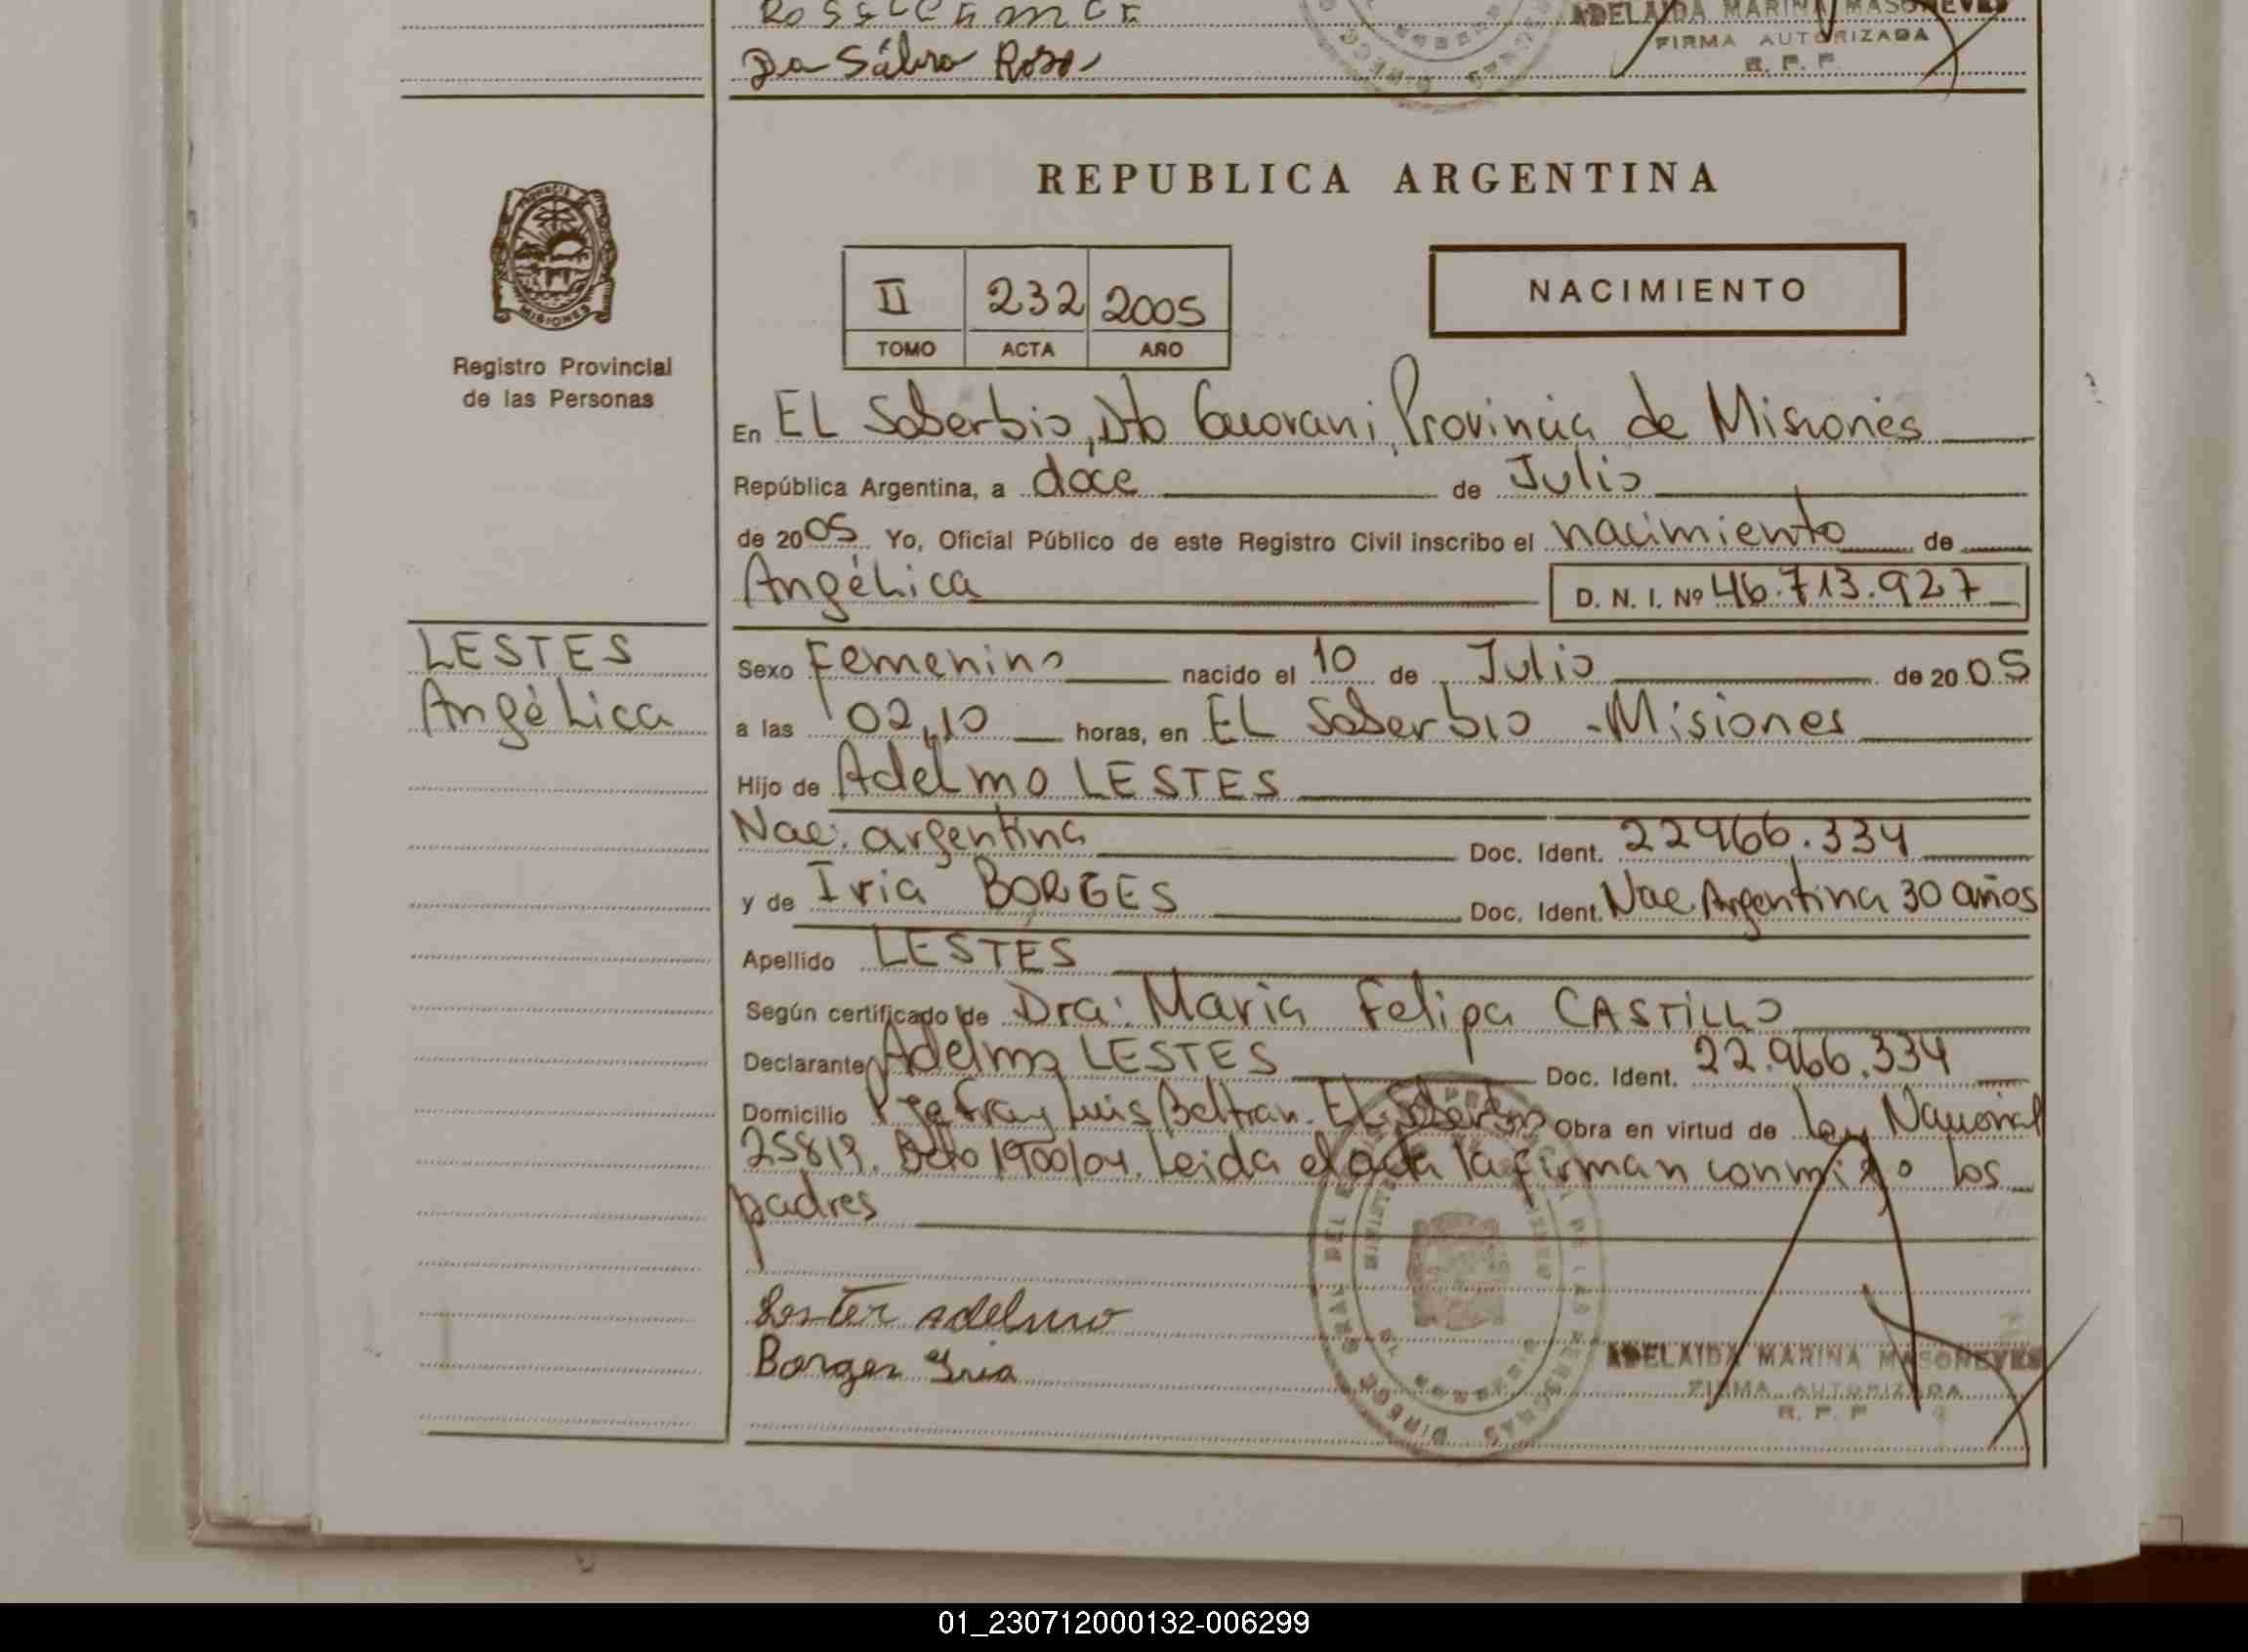 Da Silva Rosa
ADELAIDA MARINA MASONEVES
FIRMA AUTORIZADA
R. P. P.
MISIONES
Registro Provincial
de las Personas
REPUBLICA ARGENTINA
II 232 2005
TOMO ACTA AÑO
NACIMIENTO
En EL Soberbio, Dto Guarani, Provincia de Misiones
República Argentina, a doce de Julio
de 2005 Yo, Oficial Público de este Registro Civil inscribo el nacimiento de
Angélica D. N. I. Nº 46.713.927
LESTES
Angélica
Sexo Femenino nacido el 10 de Julio de 2005
a las 02,10 horas, en EL Soberbio - Misiones
Hijo de Adelmo LESTES
Nac. argentina Doc. Ident. 22966.334
y de Iria BORGES Doc. Ident. Nac Argentina 30 años
Apellido LESTES
Según certificado de Dra: Maria Felipa CASTILLO
Declarante Adelmo LESTES Doc. Ident. 22.966.334
Domicilio Pje Fray Luis Beltran. El Soberbio Obra en virtud de Ley Nacional
25819. Dcto 1900/04. Leida el acta la firman conmigo los
padres
Lestes Adelmo
Borges Iria
ADELAIDA MARINA MASONEVES
FIRMA AUTORIZADA
R. P. P
01_230712000132-006299